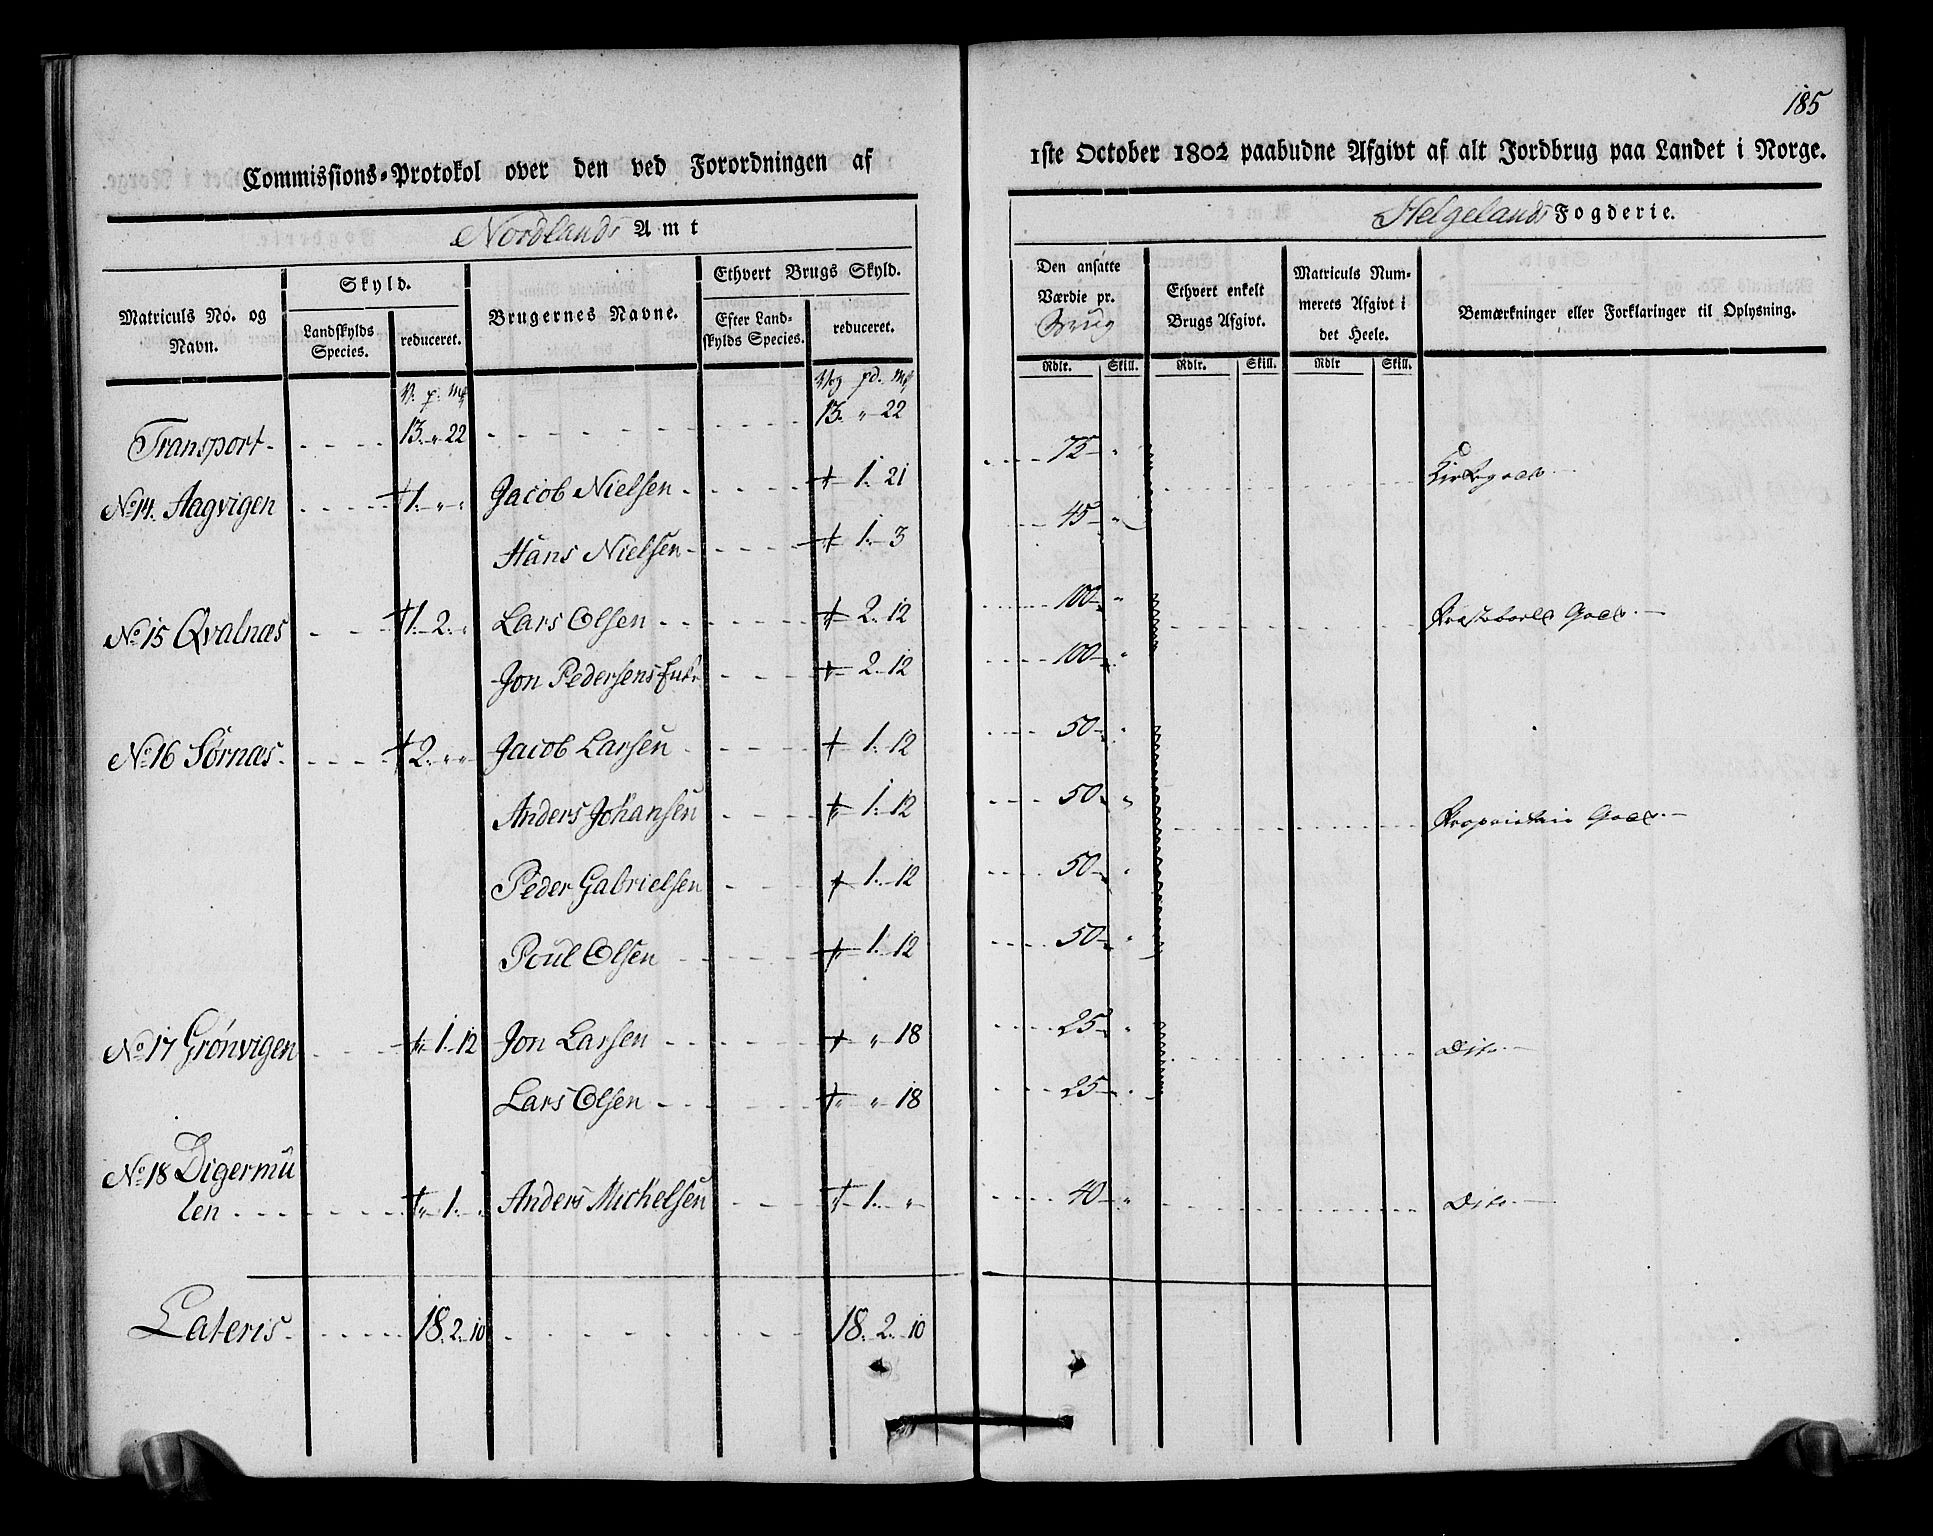 185
Commissions-Protokol over den ved Forordningen af 1ste October 1802 paabudne Afgivt af alt Jordbrug paa Landet i Norge.
Nordlands Amt Helgelands Fogderie.
Matriculs No. og Navn. Skyld. Landskylds Species. reduceret. Brugernes Navne. Ethvert Brugs Skyld. Efter Landskylds Species. reduceret. Den ansatte Værdie pr. Brug Ethvert enkelt Brugs Afgivt. Matriculs Nummerets Afgivt i det Heele. Bemærkninger eller Forklaringer til Oplysning.
Rdlr. Skill. Rdlr. Skill. Rdlr Skill.
V. p. mk Vog pd. mk
Transport 13. " 22 13. " 22
No 14. Aagvigen 1. " " Jacob Nielsen 1. 21 75 " Kirkegods
Hans Nielsen 1. 3 45 "
No 15 Qvalnæs 1. 2. " Lars Olsen 2. 12 100 " Præstebords Gods
Jon Pedersens Enke 2. 12 100 "
No 16 Sørnæs 2. " " Jacob Larsen 1. 12 50 "
Anders Johansen 1. 12 50 " Proprietair Gods
Peder Gabrielsen 1. 12 50 "
Poul Olsen 1. 12 50 "
No 17 Grønvigen " 1. 12 Jon Larsen " 18 25 " Dito
Lars Olsen " 18 25 "
No 18 Digermu
len " 1. " Anders Michelsen " 1. " 40 " Dito
Lateris 18. 2. 10 18. 2. 10